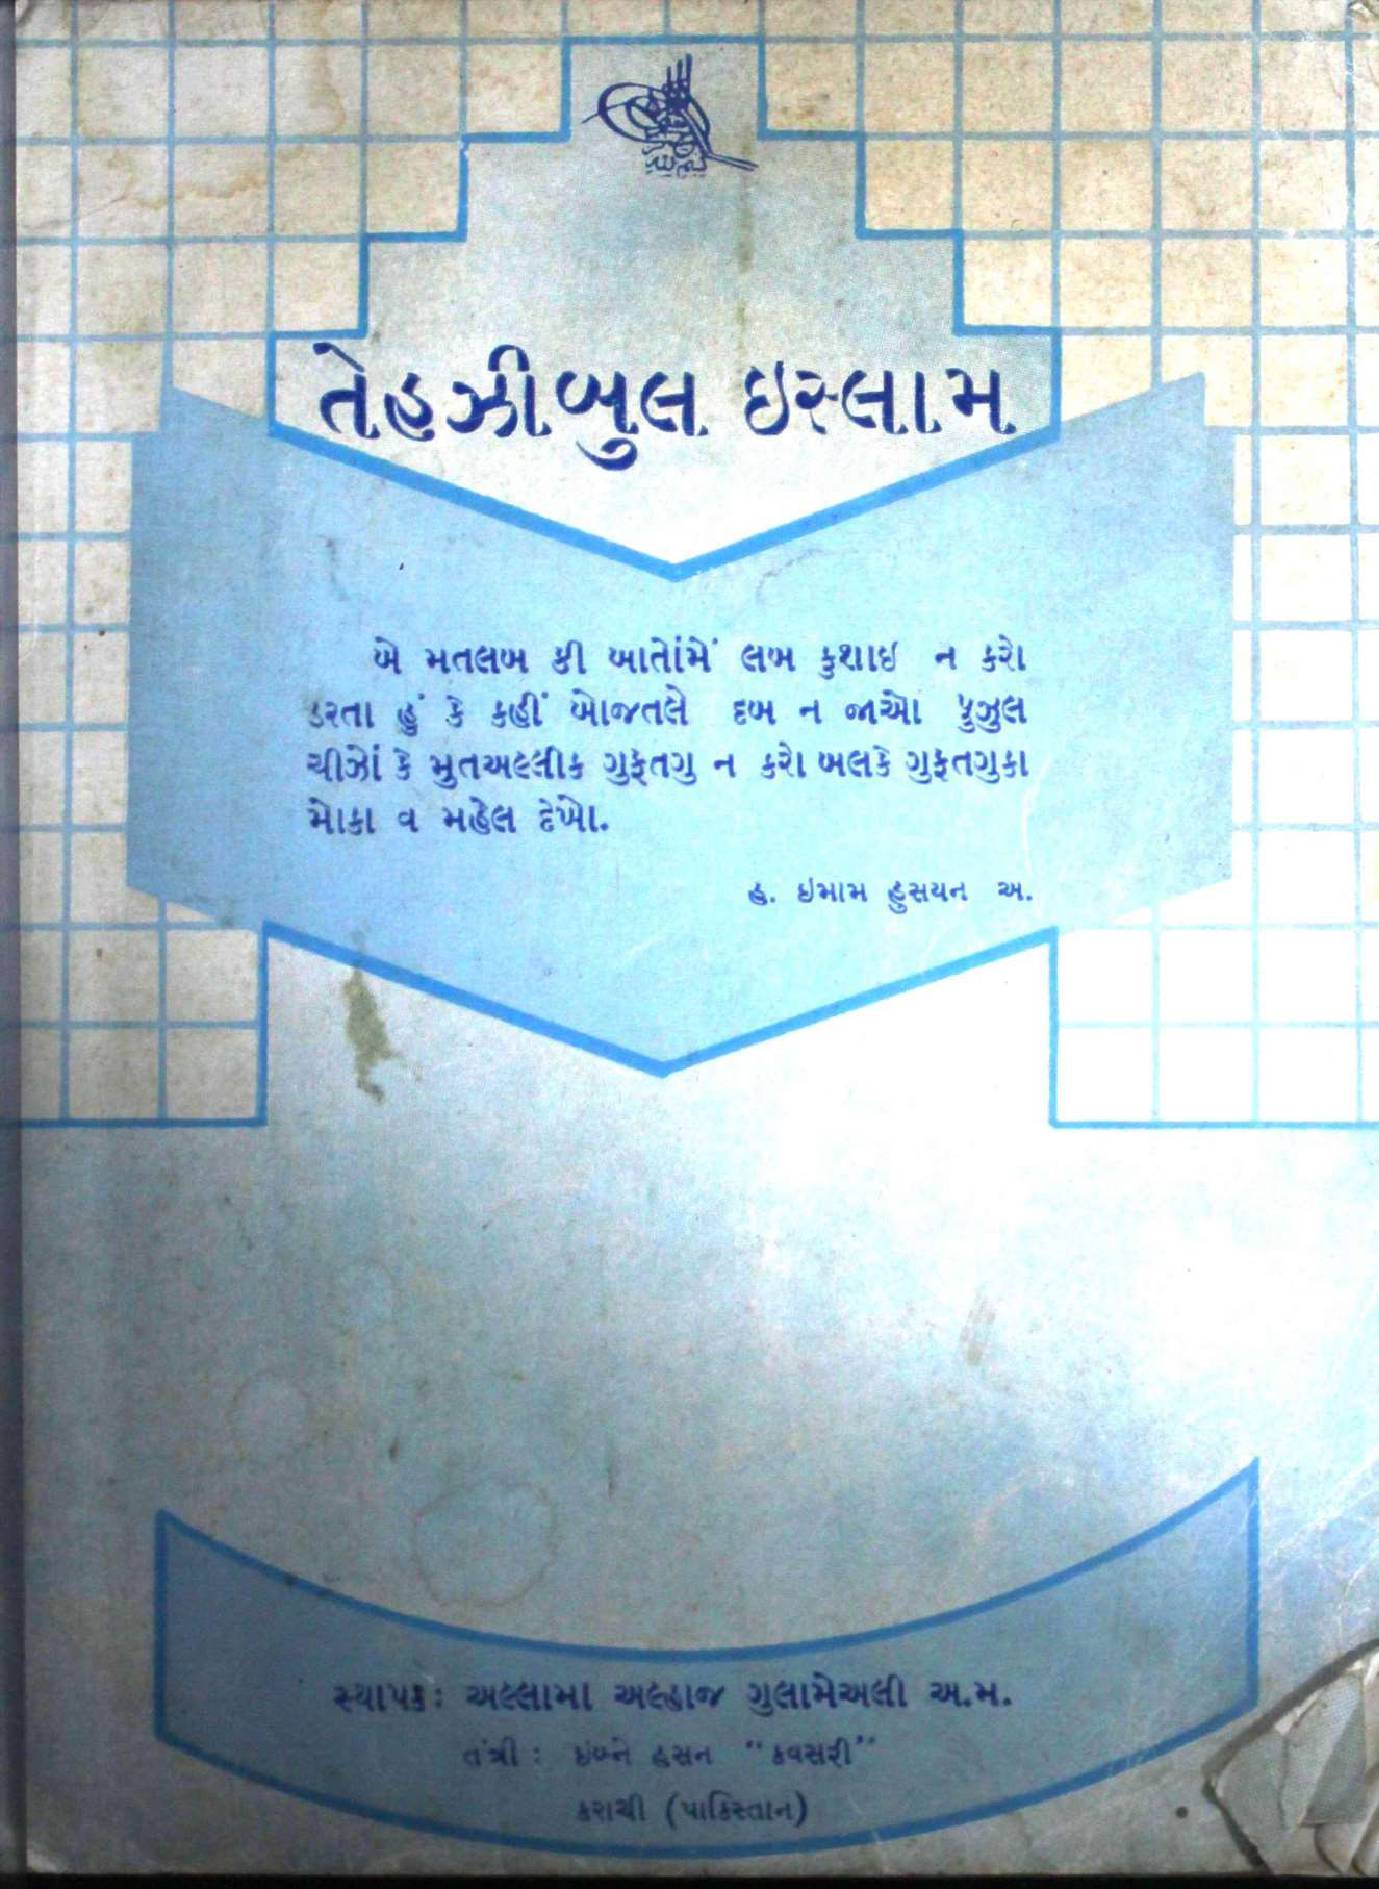 તેહઝીબુલ ઇસ્લામ
બે મતલબ કી બાતોંમેં લબ કુશાઇ ન કરો
ડરતા હું કે કહીં બોજતલે દબ ન જાઓ ફુઝુલ
ચીઝોં કે મુતઅલ્લીક ગુફતગુ ન કરો બલકે ગુફતગુકા
મોકા વ મહેલ દેખો.
હ. ઇમામ હુસયન અ.
સ્થાપક: અલ્લામા અલ્હાજ ગુલામેઅલી અ.મ.
તંત્રી : ઇબ્ને હસન "કવસરી"
કરાચી (પાકિસ્તાન)